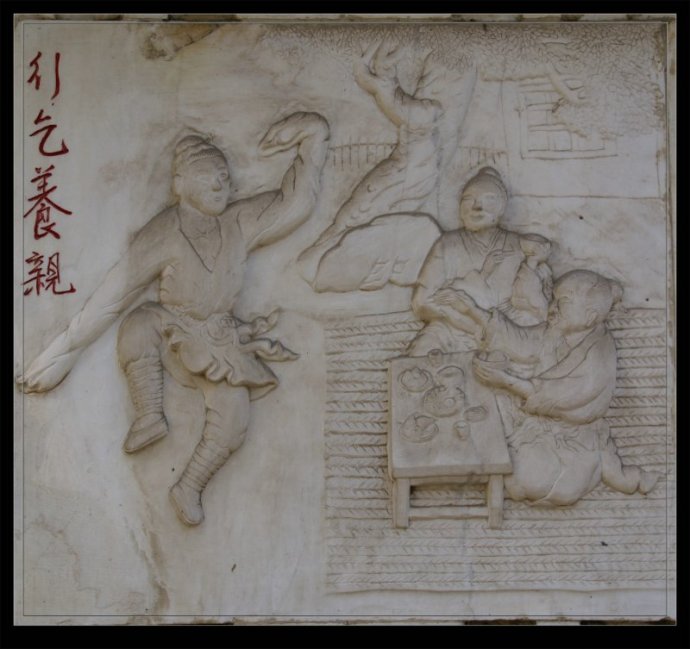 行乞養親